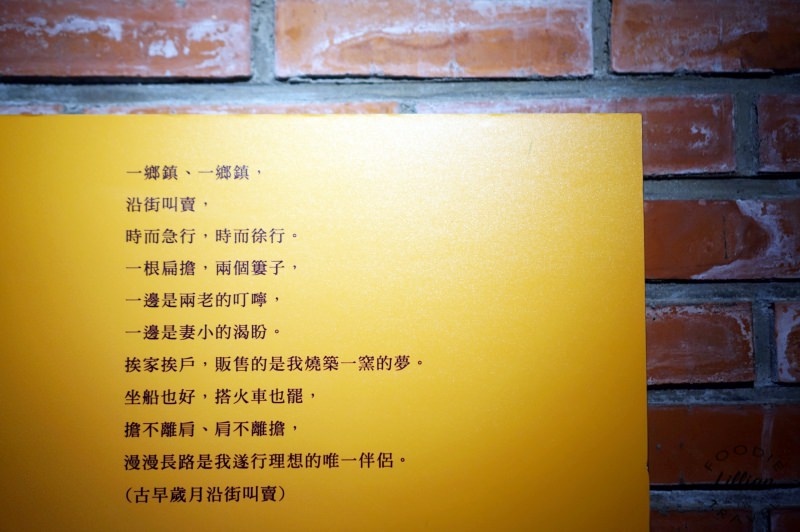 一鄉鎮、一鄉鎮，
沿街叫賣，
時而急行，時而徐行。
一根扁擔，兩個簍子，
一邊是兩老的叮嚀，
一邊是妻小的渴盼。
挨家挨戶，販售的是我燒築一窯的夢。
坐船也好，搭火車也罷，
擔不離肩、肩不離擔，
漫漫長路是我遂行理想的唯一伴侶。
(古早歲月沿街叫賣)
FOODIE
Lillian